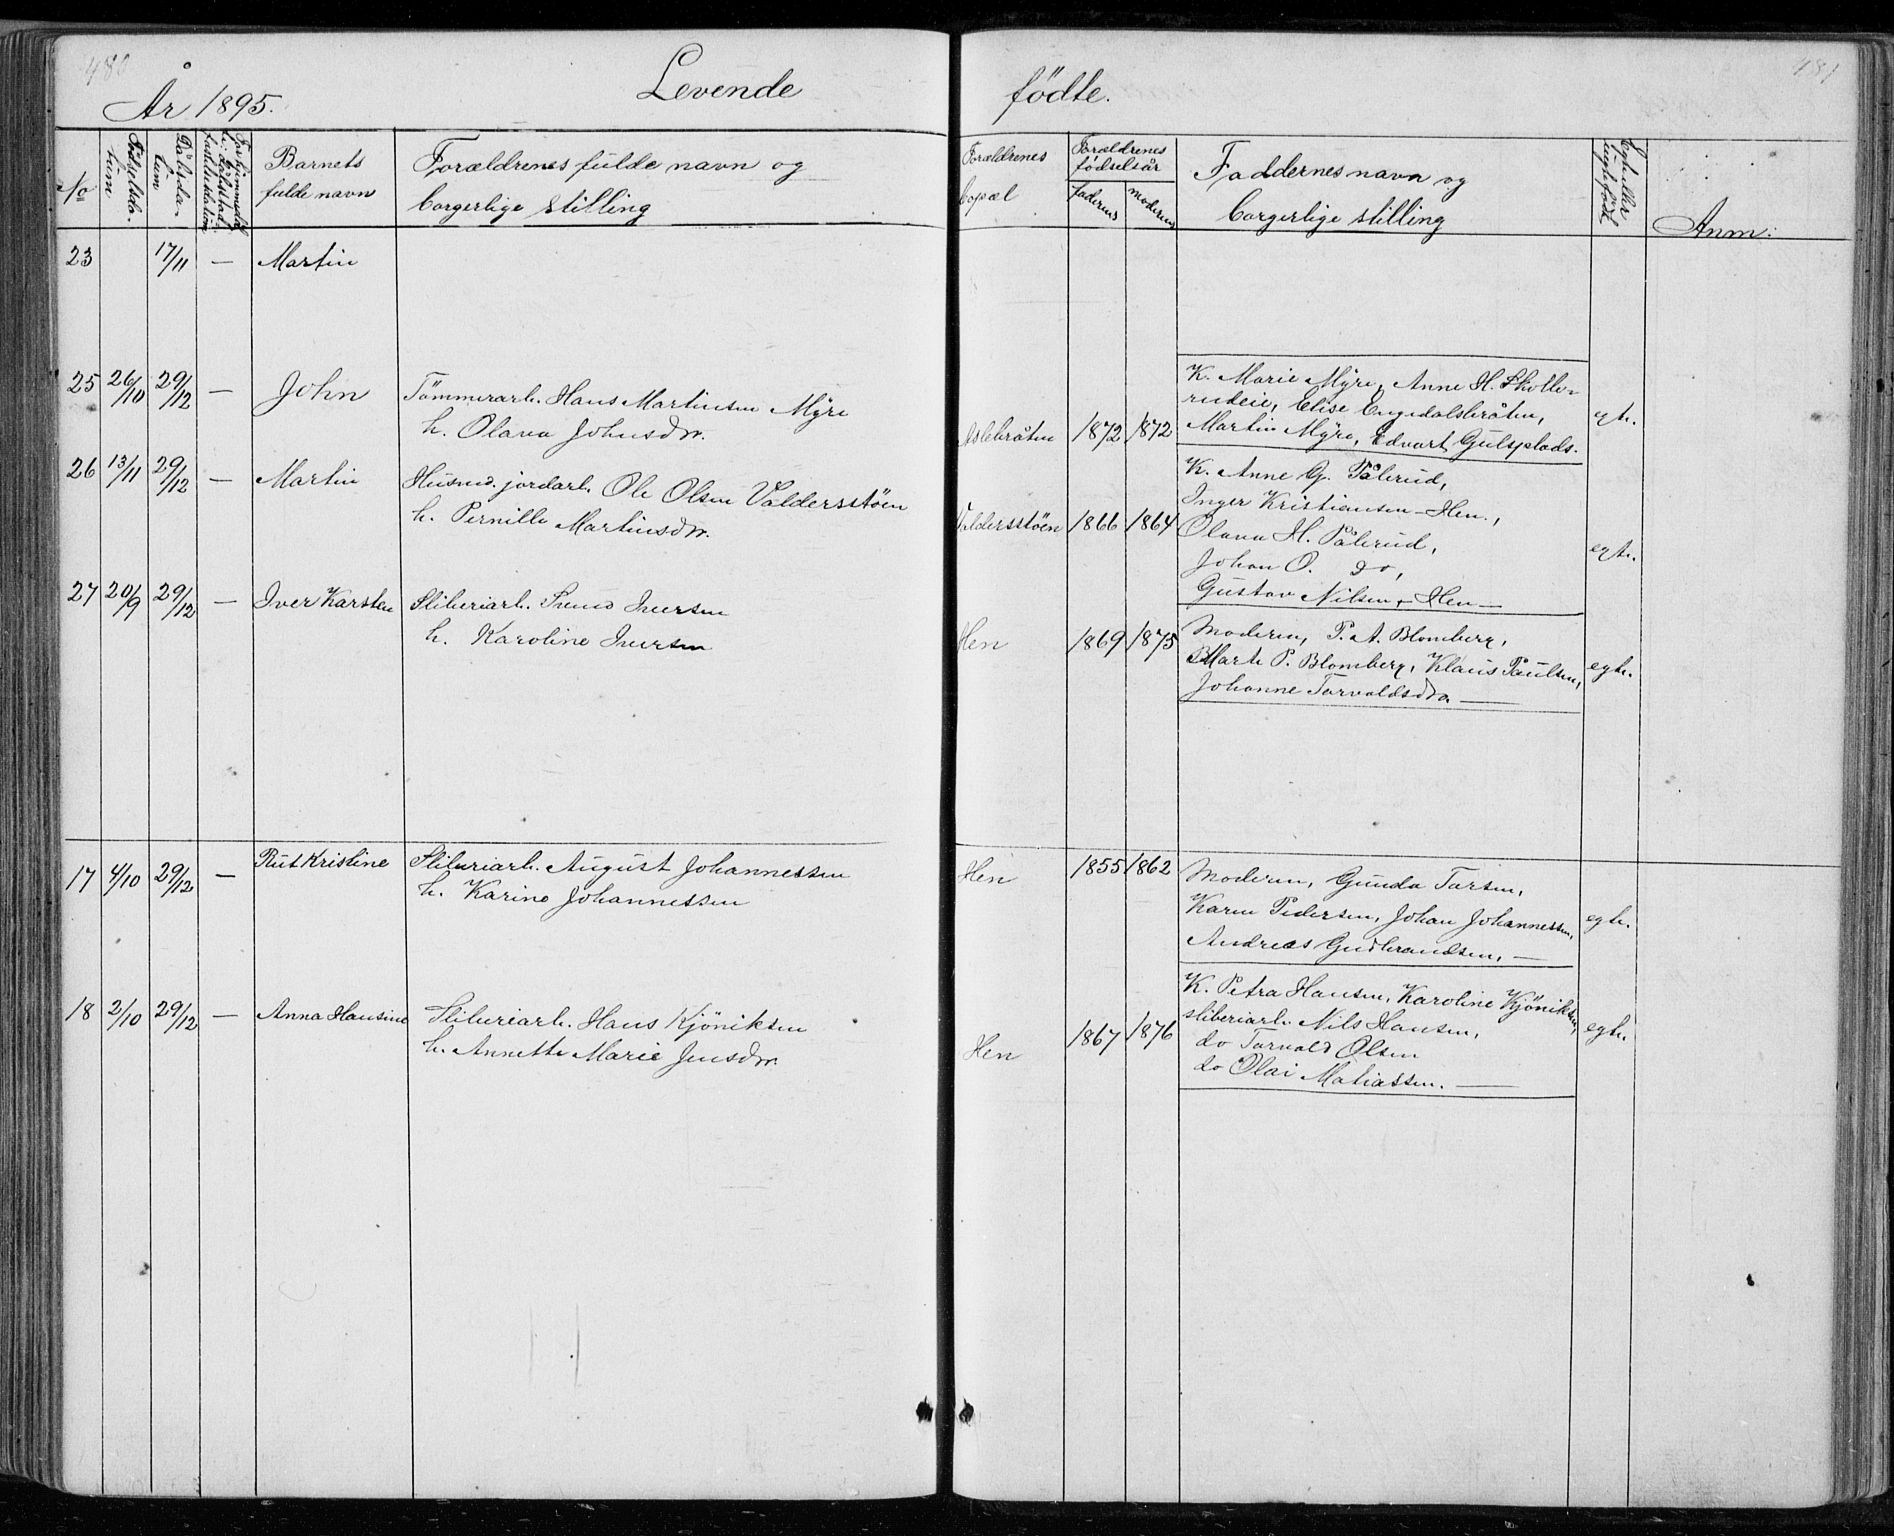 480
481
Levende fødte.
År 1895.
No
Fødselsda-
tum
Dåbsda-
tum
Barnets
fulde navn
Forældrenes fulde navn og
borgerlige stilling
Forældrenes
bopæl
Forældrenes
fødselsår
faderens
moderens
Faddernes navn og
borgerlige stilling
Anm:
23 17/11 — Martin
25 26/10 29/12 — John
Tömmerarb. Hans Martinsen Myre
h. Olava Johnsdtr.
Aslebråten 1872 1872
K. Marie Myre, Anne H. Skolle-
rudeie, Elise Engedalsbråten,
Martin Myre, Edvart Gulsplads.
egte.
26 13/11 29/12 — Martin
Husmd. jordarb. Ole Olsen Valdersstöen
h. Pernille Martinsdtr.
Valdersstöen 1866 1864
K. Anne G. Pålerud,
Inger Kristiansen - Hen.,
Olava H. Pålerud,
Johan O. do,
Gustav Nilsen, Hen —
egte.
27 20/9 29/12 — Iver Karsten
Sliberiarb. Svend Iversen
h. Karoline Iversen
Hen 1869 1875
Moderen, P. A. Blomberg,
Marte P. Blomberg, Klaus Paulsen,
Johanne Torvaldsdtr. —
egte.
17 4/10 29/12 — Rut Kristine
Sliberiarb. August Johannessen
h. Karine Johannessen
Hen 1855 1862
Moderen, Gunda Torsen,
Karen Pedersen, Johan Johannessen,
Andreas Gudbrandsen. —
egte.
18 2/10 29/12 — Anna Hansine
Sliberiarb. Hans Kjöniksen
h. Annette Marie Jensdtr.
Hen 1867 1876
K. Petra Hansen, Karoline Kjöniksen,
sliberiarb. Nils Hansen,
do Torvald Olsen
do Olai Matiassen. —
egte.